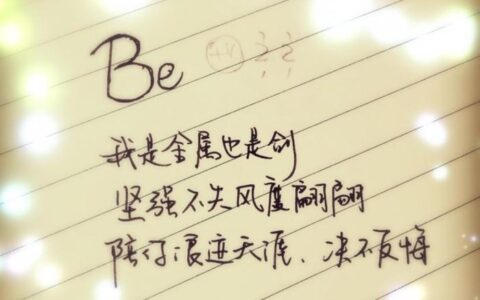 Be
我是金属也是剑
坚强不失风度翩翩
陪你浪迹天涯、决不反悔